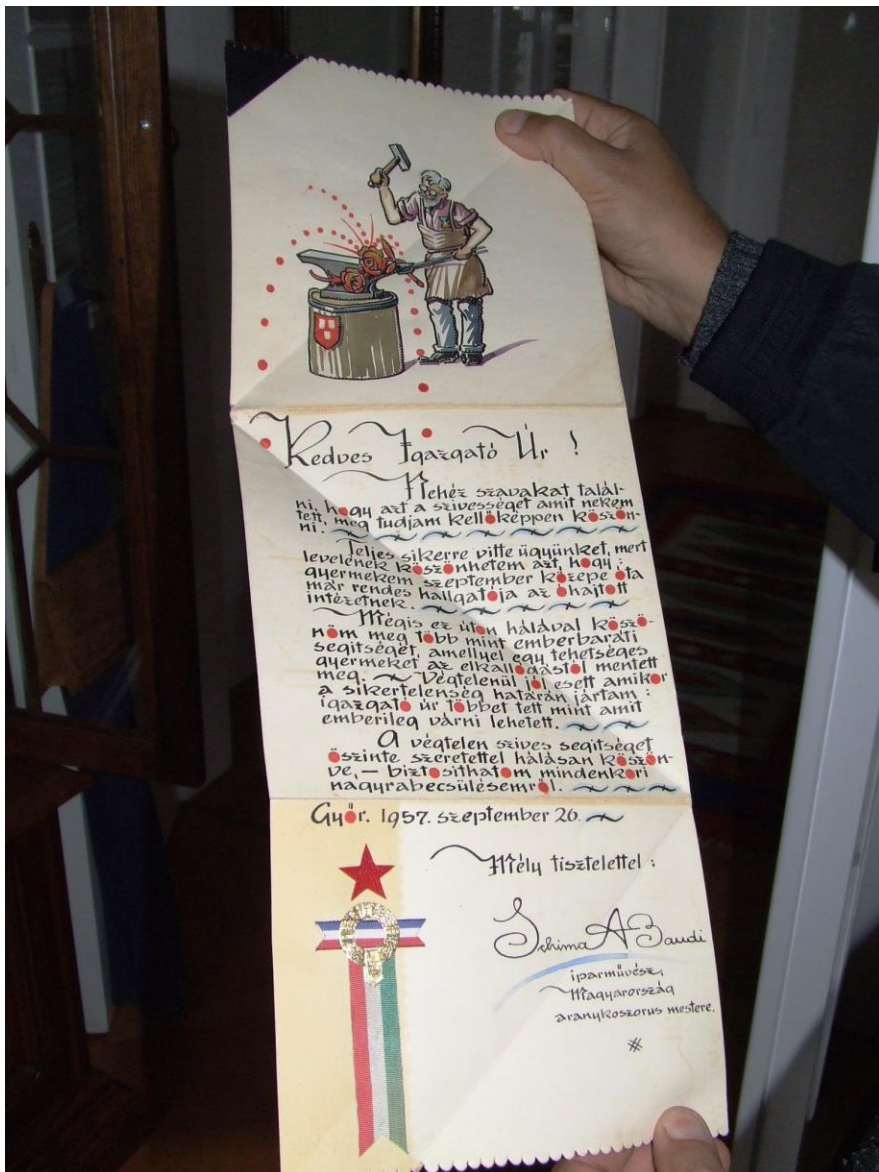 Kedves Igazgató Úr !
Nehéz szavakat talál-
ni, hogy azt a szivességet amit nekem
tett, meg tudjam kellőképpen köszön-
ni.
Teljes sikerre vitte ügyünket, mert
levelének köszönhetem azt, hogy :
gyermekem szeptember közepe óta
már rendes hallgatója az óhajtott
intézetnek.
Mégis ez úton hálával köszö-
nöm meg több mint emberbaráti
segitségét, amellyel egy tehetséges
gyermeket az elkallódástól mentett
meg. Végtelenül jól esett amikor
a sikertelenség határán jártam :
igazgató úr többet tett mint amit
emberileg várni lehetett.
A végtelen szives segitséget
őszinte szeretettel hálásan köszön-
ve, — biztosithatom mindenkori
nagyrabecsülésemről.
Győr. 1957. szeptember 26.
Mély tisztelettel :
Schima A Bandi
iparművész,
Magyarország
aranykoszorus mestere.